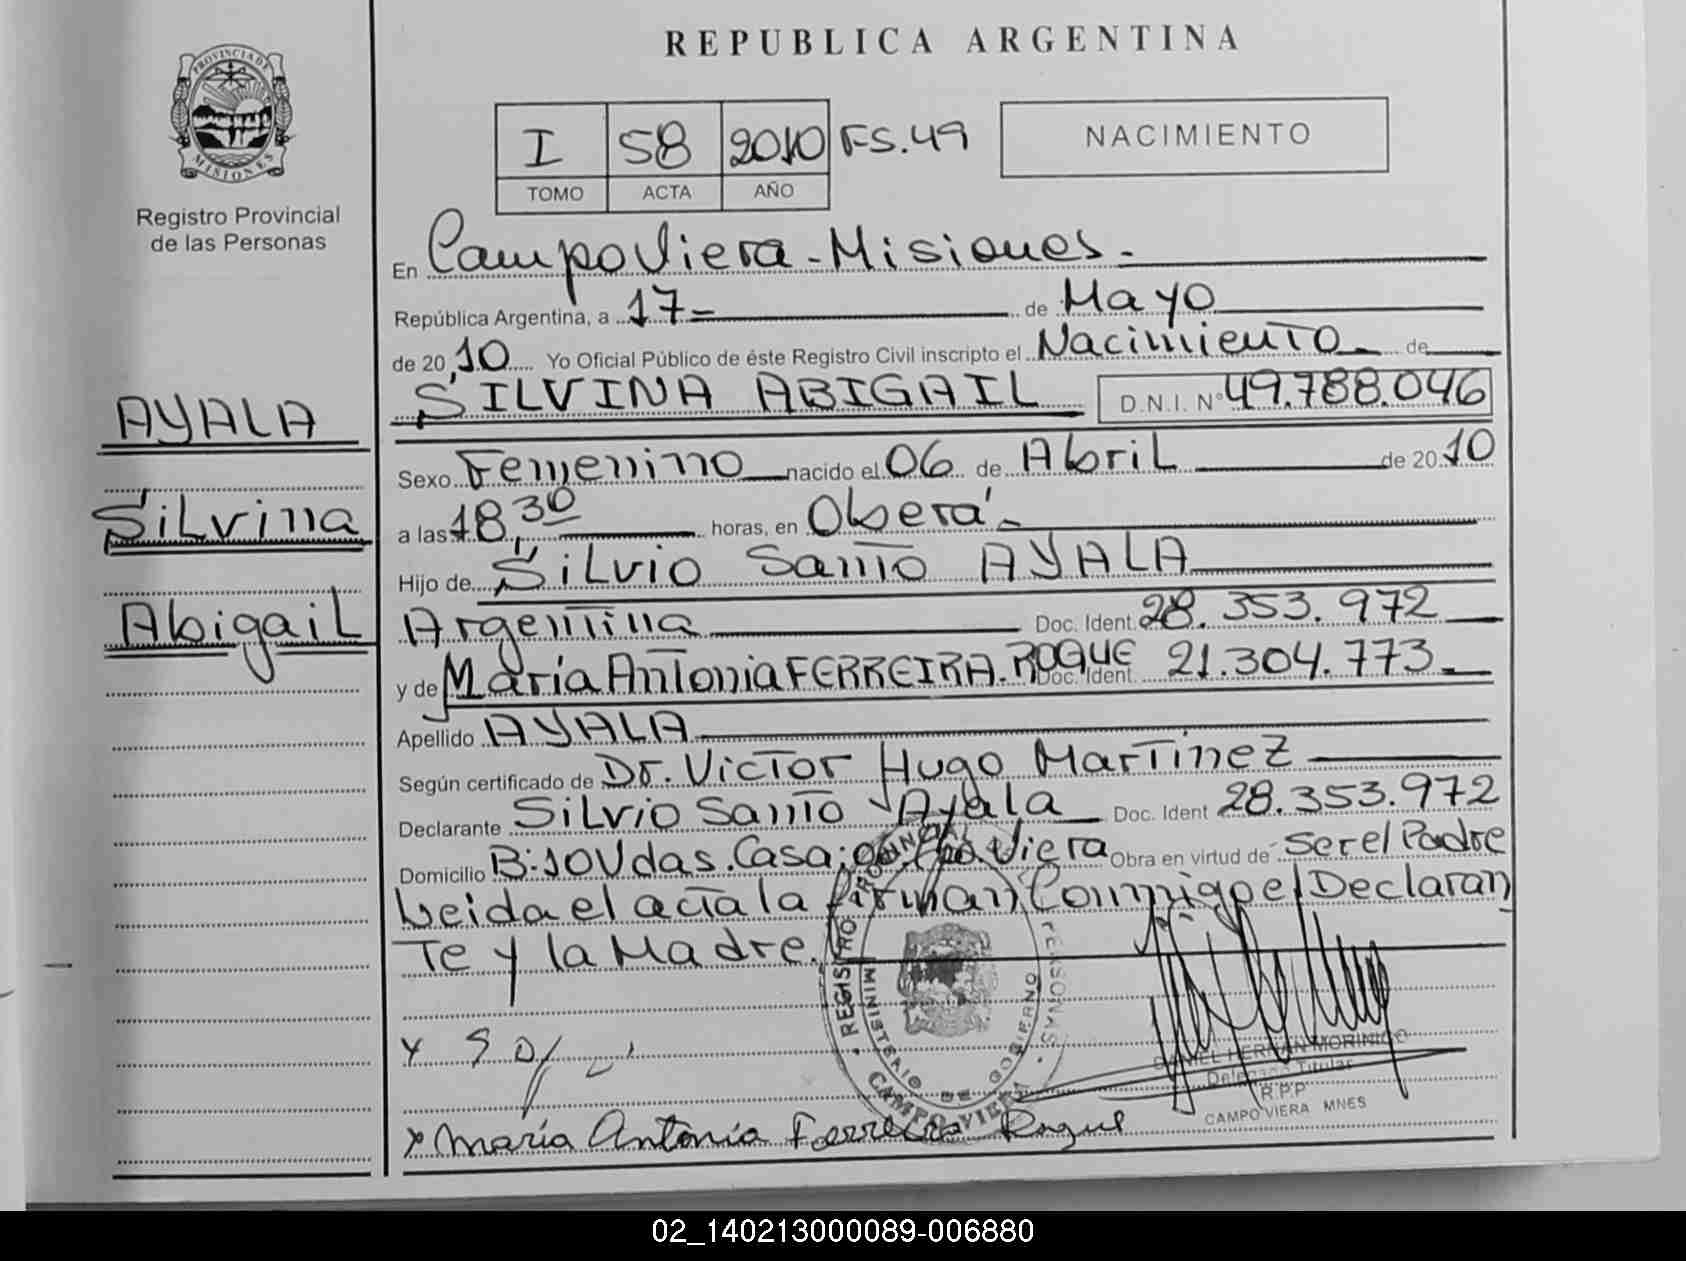 REPUBLICA ARGENTINA
PROVINCIA DE
MISIONES
Registro Provincial
de las Personas
I 58 2010 FS.49
TOMO ACTA AÑO
NACIMIENTO
En Campo Viera - Misiones.-
República Argentina, a 17- de Mayo
de 2010 Yo Oficial Público de éste Registro Civil inscripto el Nacimiento de
SILVINA ABIGAIL D.N.I. Nº 49.788.046
AYALA
Silvina
Abigail
Sexo Femenino nacido el 06 de Abril de 2010
a las 18,30 horas, en Oberá-
Hijo de Silvio Santo AYALA
Argentina Doc. Ident. 28.353.972
y de María Antonia FERREIRA. ROQUE Doc. Ident. 21.304.773-
Apellido AYALA
Según certificado de Dr. Victor Hugo Martinez
Declarante Silvio Santo Ayala Doc. Ident 28.353.972
Domicilio B: 10 Vdas. Casa: Cpo. Viera Obra en virtud de Ser el Padre
Leida el acta la firman Conmigo el Declaran
Te y la Madre.
REGISTRO PROVINCIAL PERSONAS
MINISTERIO DE GOBIERNO
CAMPO VIERA
DANIEL HERNAN MORINIGO
Delegado Titular
R.P.P
CAMPO VIERA MNES
x María Antonia Ferreira Roque
02_140213000089-006880